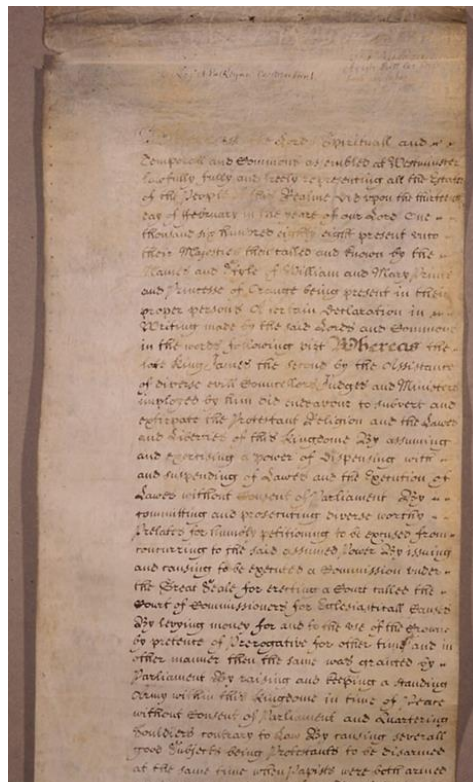 Le Roy et la Royne le veulent
Whereas the Lords Spirituall and
Temporall and Commons assembled at Westminster
lawfully fully and freely representing all the Estates
of the People of this Realme did upon the thirteenth
day of February in the yeare of our Lord One
thousand six hundred eighty eight present unto
their Majesties then called and known by the
Names and Style of William and Mary Prince
and Princesse of Orange being present in their
proper persons A certain Declaration in
Writing made by the said Lords and Commons
in the words following vizt Whereas the
late King James the second by the Assistance
of diverse evill Councellors Judges and Ministers
imployed by him did endeavour to subvert and
extirpate the Protestant Religion and the Lawes
and Liberties of this Kingdome By assuming
and exercising a power of dispensing with
and suspending of Lawes and the Execution of
Lawes without Consent of Parliament By
committing and prosecuting diverse worthy
Prelates for humbly petitioning to be excused from
concurring to the said assumed Power By issuing
and causing to be executed a Commission under
the Great Seale for erecting a Court called the
Court of Commissioners for Ecclesiasticall Causes
By levying money for and to the use of the Crowne
by pretence of Prerogative for other time and in
other manner then the same was granted by
Parliament By raising and keeping a standing
Army within this Kingdome in time of Peace
without Consent of Parliament and Quartering
Souldiers contrary to Law By causing severall
good Subjects being Protestants to be disarmed
at the same time when Papists were both armed